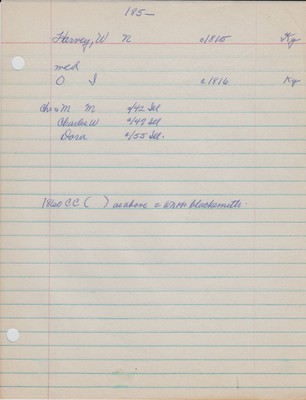 185-
Harvey, W N c1815 Ky
med
O I c1816 Ky
Chn M M c/42 Ill
Charles W c/49 Ill
Dora c/55 Ill.
1860 CC ( ) as above = blacksmith.